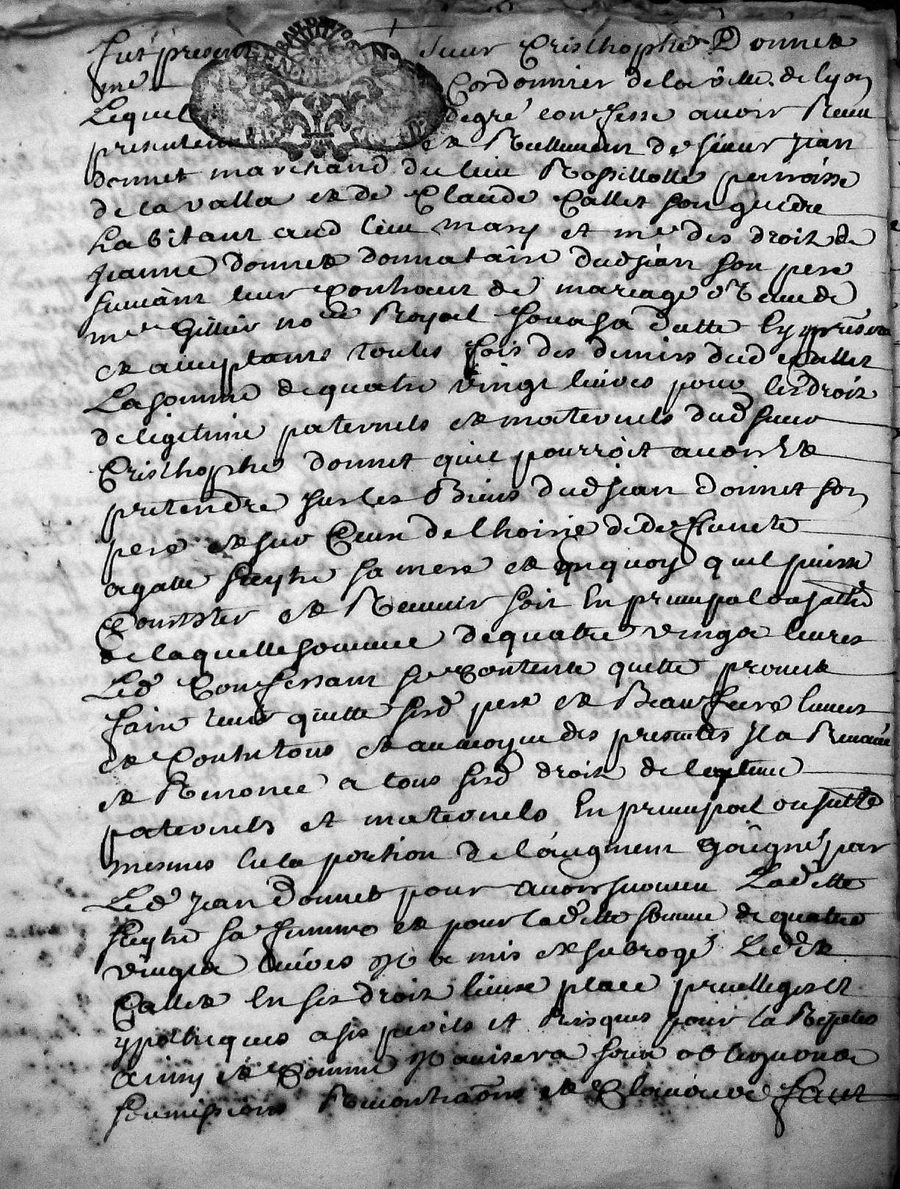 Fut present sieur Cristhophe Donnet
me Cordonnier de la ville de lyon
Lequel degré confesse avoir Receu
presentem et Reellement de sieur jean
donnet marchand du lieu Rossillolle parroisse
de la valla et de Claude Callet son gendre
habitant aud lieu mary et me des droit de
jeanne donnet donnataire dud jean son pere
suivant leur Contract de mariage Receu de
me no Royal
et acceptants toutes fois des deniers dud Callet
La somme de quatre vingt livres pour les droit
de legitime paternels et maternels dud sieur
Cristhophe donnet quil pourroit avoir et
pretendre sur les Biens dud jean donnet son
pere et sur Ceux de lhoirie de deffuncte
agatte seytre sa mere et en quoy quil puisse
Consister et Revenir soit En principal ou
de laquelle somme de quatre vingt livres
Led Confessant se Contente quitte promet
faire tenir quitte sesd pere et Beau frere
et au moyen des presentes il a
et Renonce a tous sesd droit de legitime
paternels et maternels En principal ou
mesmes de la portion de laugment gaigné par
Led jean donnet pour avoir survecu Laditte
seytre sa femme et pour laditte somme de quatre
vingt livres il a mis et subrogé Ledt
Callet En ses droit lieux place privilleges et
ypotheques a ses perils et Risques pour la
ainsy et Comme il avisera sous obligations
soumissions Renontiaons et Clauses fait